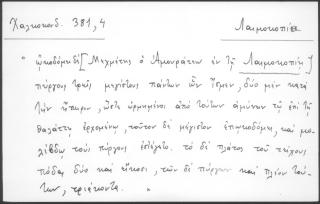 Χαλκοκονδ. 381,4
Λαιμοκοπίη
"ᾠκοδόμει δὲ [Μεχμέτης ὁ Ἀμουράτεω ἐν τῇ Λαιμοκοπίῃ]
πύργους τρεῖς μεγίστους πάντων ὧν ἴσμεν, δύο μὲν κατὰ
τὴν ἤπειρον, ὥστε ὁρμημένοις ἀπὸ τούτων ἀμύνειν τῷ ἐπὶ τῇ
θαλάττῃ ἐρχομένῳ, τοῦτον δὲ μέγιστον ἐπῳκοδόμει, καὶ μο-
λίβδῳ τοὺς πύργους ἐστέγαζε. τὸ δὲ πλάτος τοῦ τείχους
πόδας δύο καὶ εἴκοσι, τῶν δὲ πύργων καὶ πλέον τού-
των, τριάκοντα. "